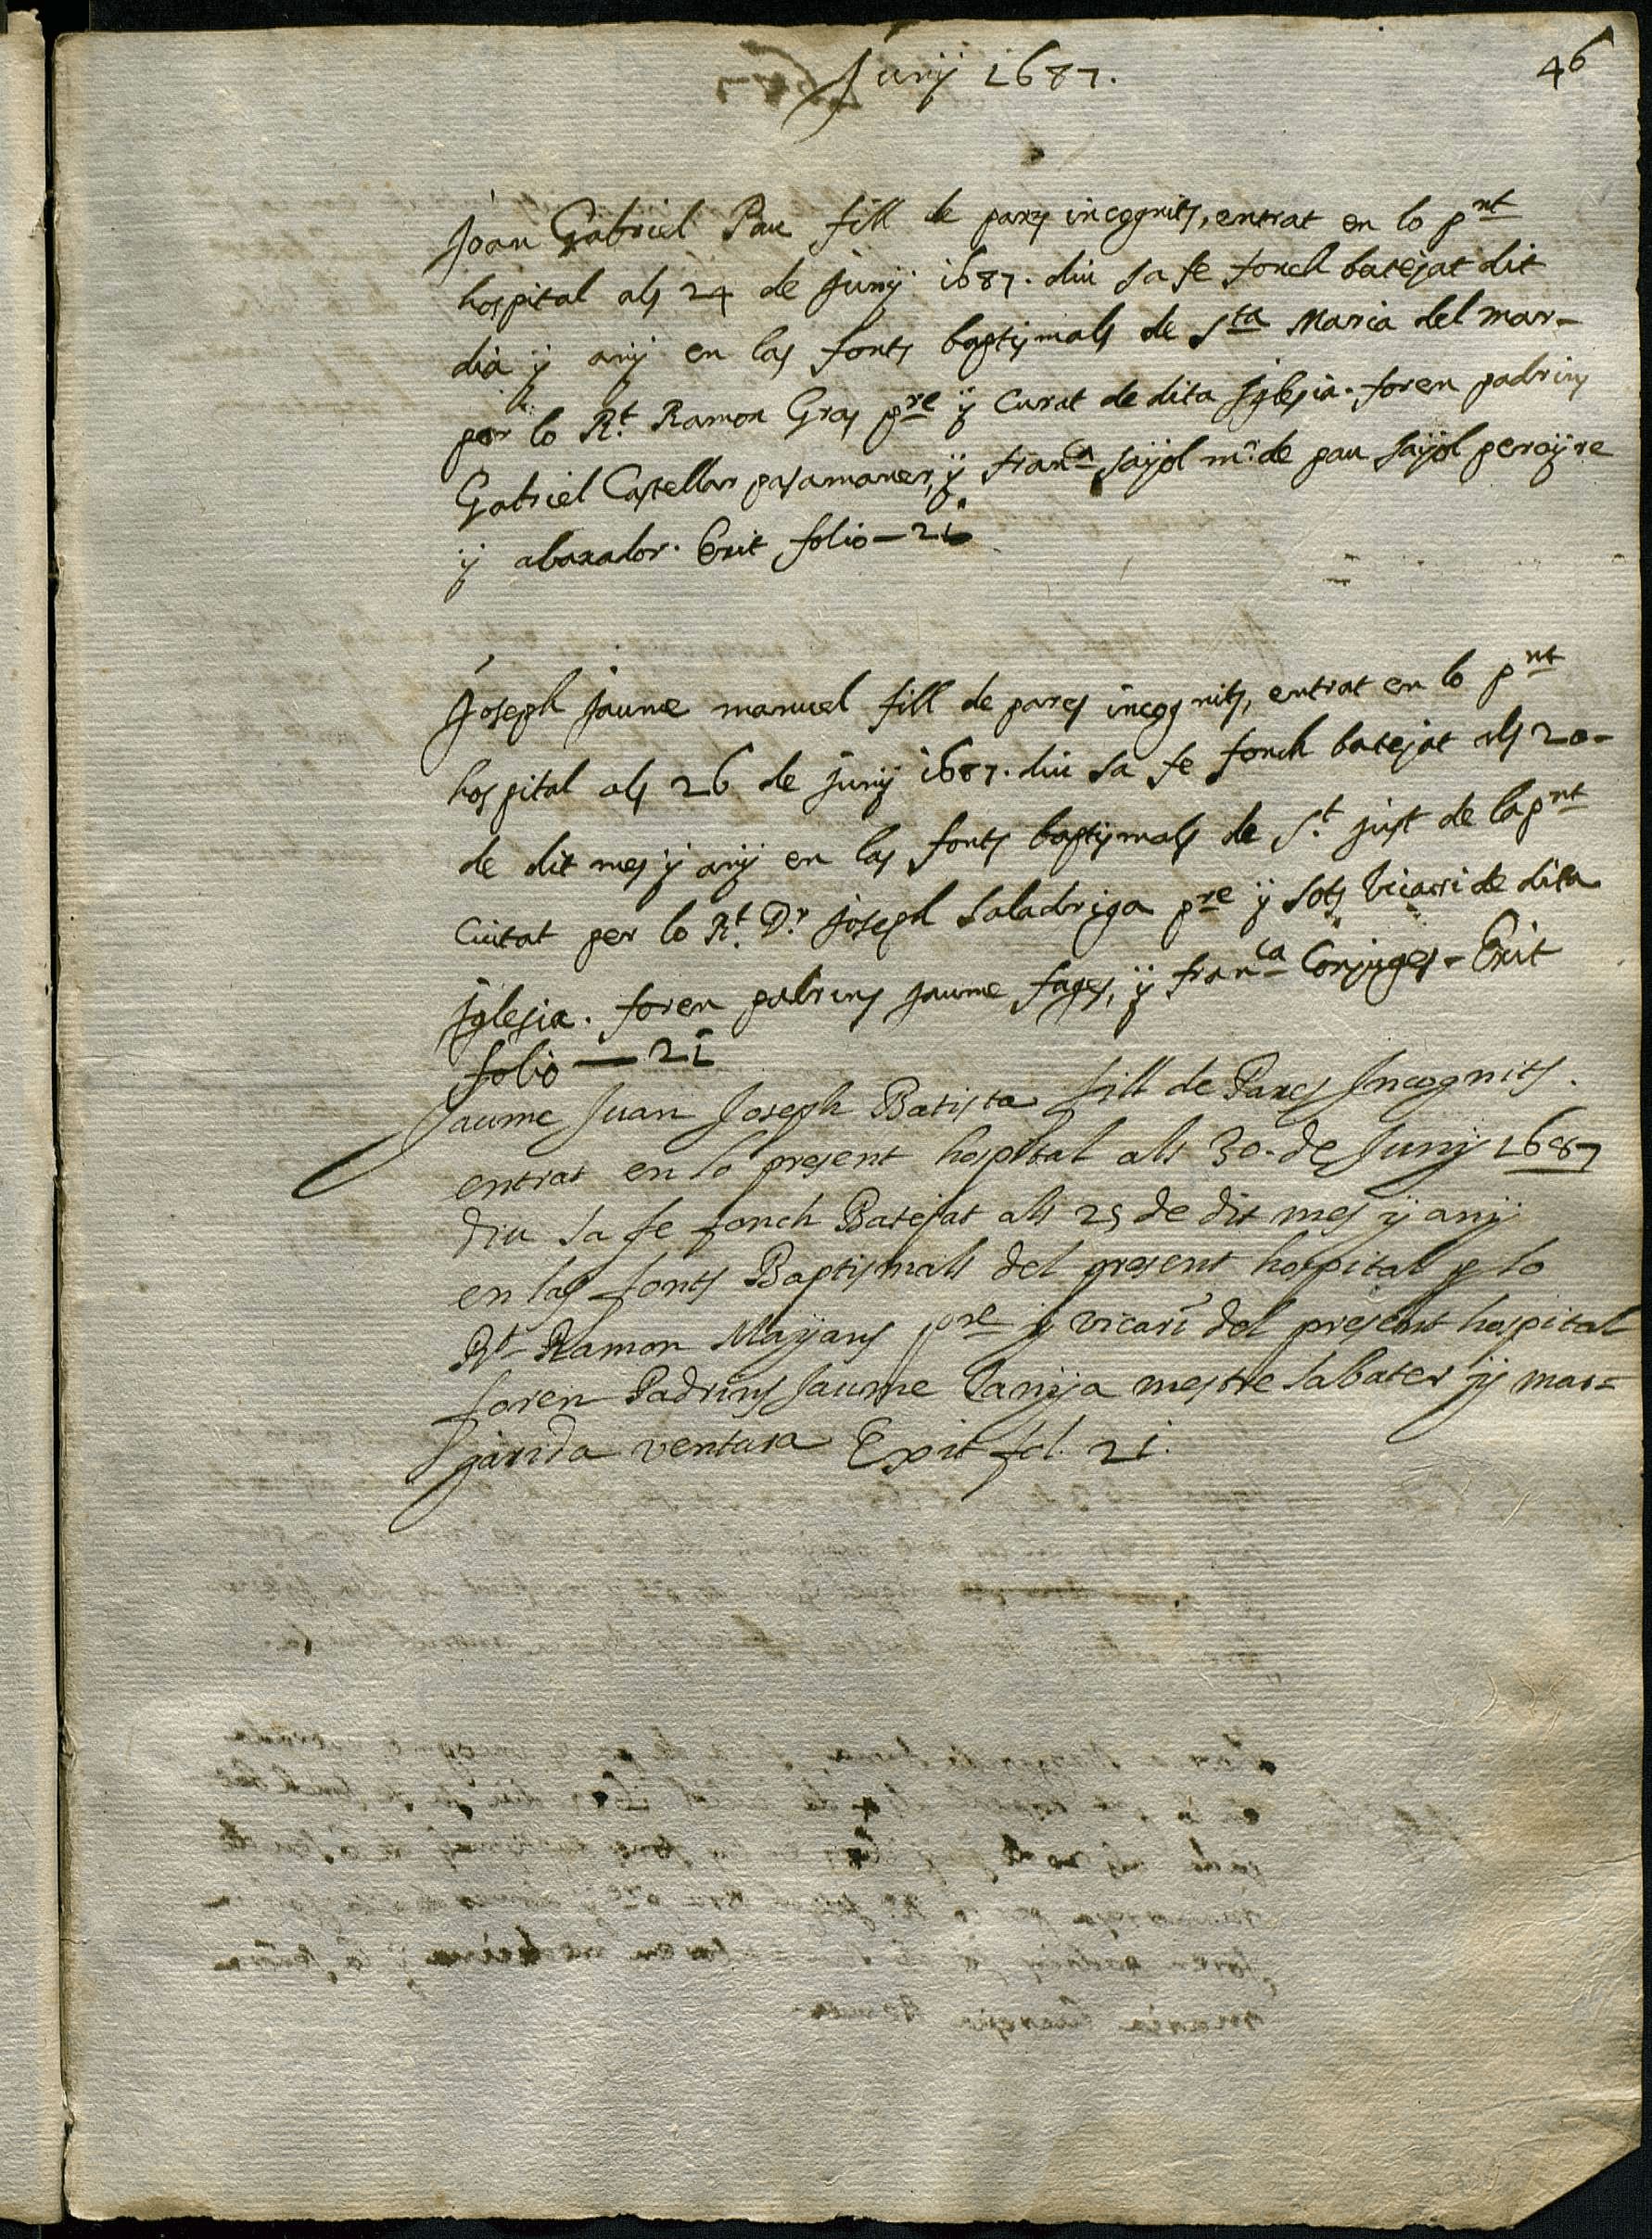 Juny 1687.
46
Joan Gabriel Pau fill de pares incognits, entrat en lo pnt
hospital als 24 de Juny 1687. diu sa fe fonch batejat dit
dia y any en las fonts baptismals de Sta Maria del mar-
per lo Rt. Ramon Gras pre y Curat de dita Iglesia. foren padrins
Gabriel Castellar pasamaner, y franca sayol mr. de pau sayol perayre
y abaxador. Exit folio - 21
Joseph Jaume manuel fill de pares incognits, entrat en lo pnt
hospital als 26 de juny 1687. diu sa fe fonch batejat als 20-
de dit mes y any en las fonts baptismals de St. just de la pnt
Ciutat per lo Rt. Dr. joseph Saladriga pre y sots vicari de dita
Iglesia. foren padrins jaume fages, y franca Conjuges - Exit
folio — 21
Jaume Juan Joseph Batista fill de Pares Incognits.
entrat en lo present hospital als 30. de Juny 1687
diu sa fe fonch Batejat als 25 de dit mes y any
en las fonts Baptismals del present hospital p lo
Rt Ramon Mayans pre y vicari del present hospital
foren Padrins Jaume mestre sabater y mar=
garida ventura Exit fol. 21.